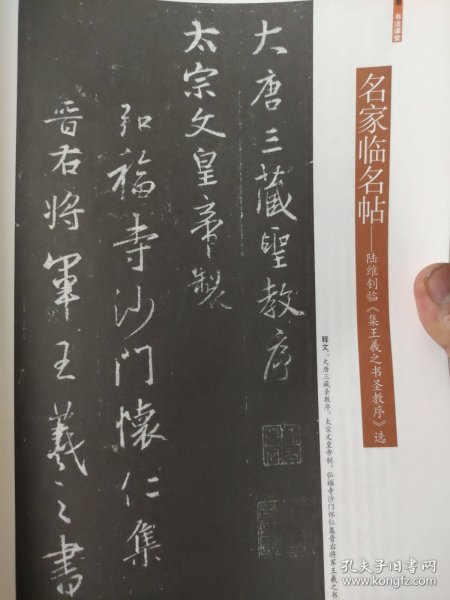 书法课堂
名家临名帖——陆维钊临《集王羲之书圣教序》选
大唐三藏聖教序
太宗文皇帝製
弘福寺沙門懷仁集
晋右將軍王羲之書
释文：大唐三藏圣教序。太宗文皇帝制。弘福寺沙门怀仁集晋右将军王羲之书
孔夫子旧书网